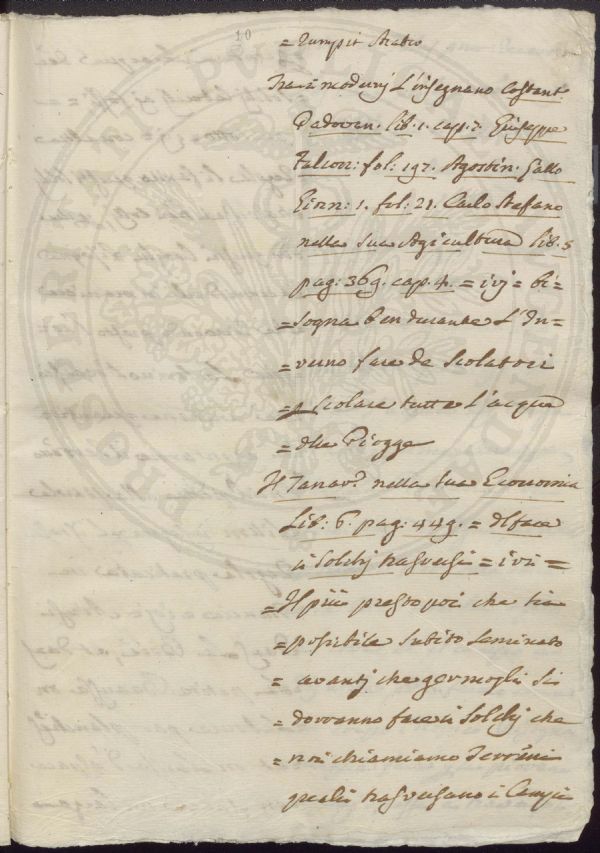 10
= rumpit Aratro
Tra i moderni L'insegnano Costant.
Padoven. lib. 1. cap. 7. Giuseppe
Falcon: fol: 197. Agostin. Gallo
Giorn: 1. fol: 21. Carlo Stefano
nella sua Agricultura lib. 5
pag: 369. cap. 4. = ivj = bi=
=sogna ben durante L'In=
=verno fare de Scolatori
= p scolare tutta L'acqua
= dlle Piogge
Il Tanar.ª nella sua Economia
Lib: 6. pag: 449. = Del fare
i Solchj trasversi = ivi =
= Il più presto poi che sia
= possibile subito seminato
= avantj che germogli si
= dovranno fare i Solchj che
= noi chiamiamo Terreni
quali trasversano i Campi